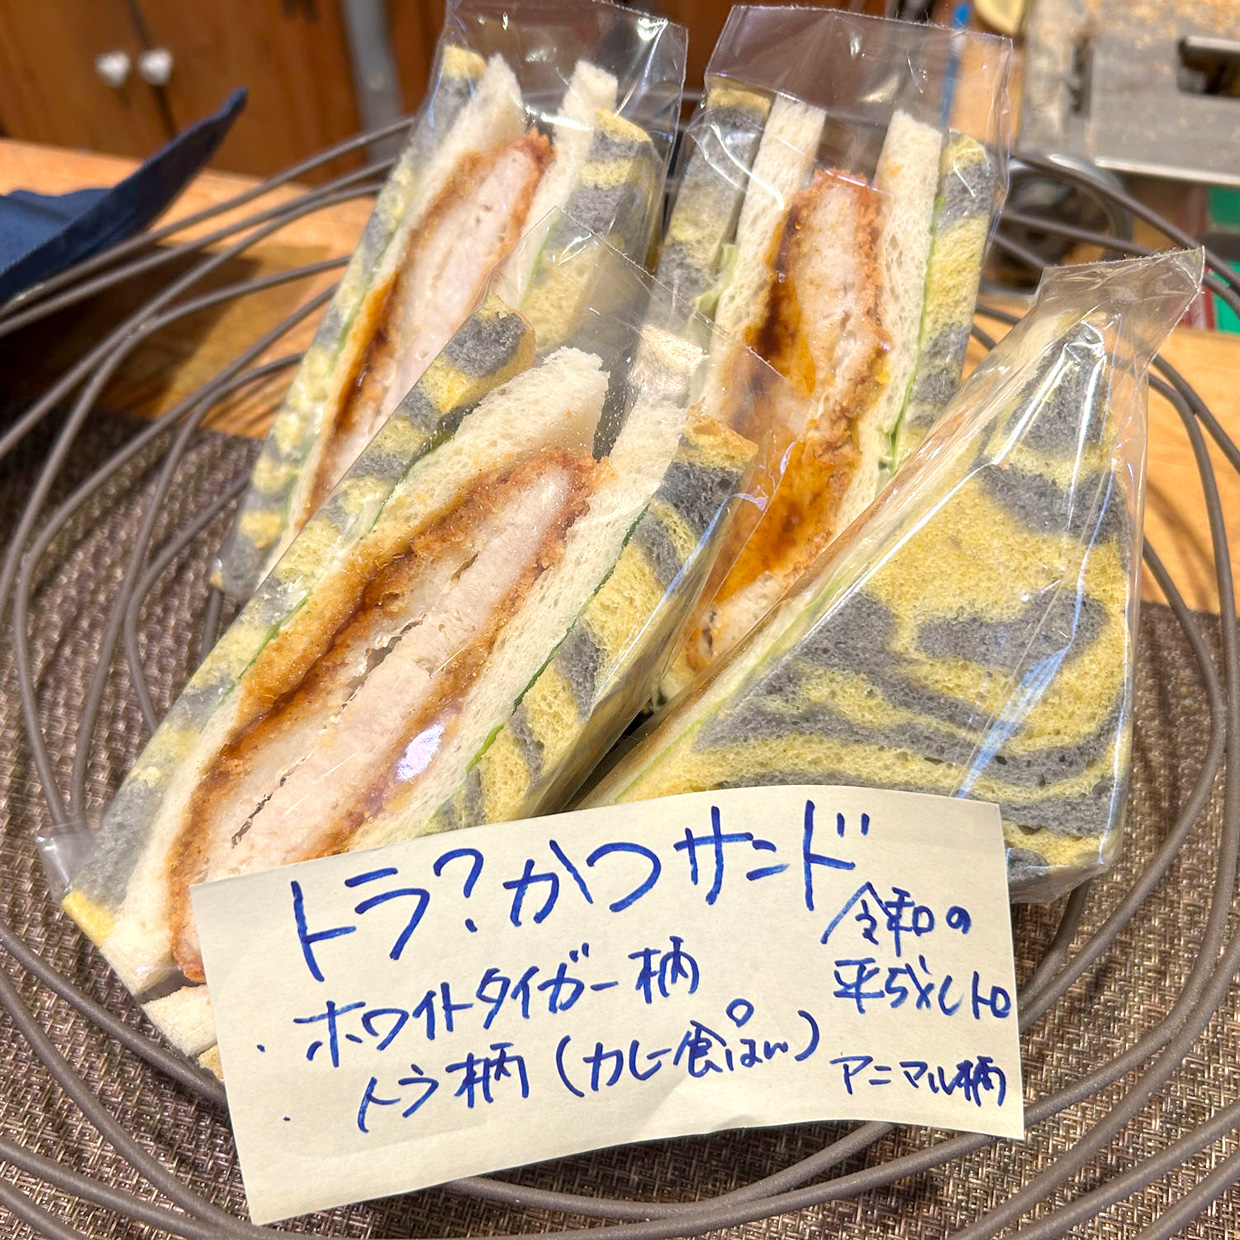 トラ?かつサンド
・ホワイトタイガー柄
・トラ柄(カレー食ぱん)
令和の
平成レトロ
アニマル柄